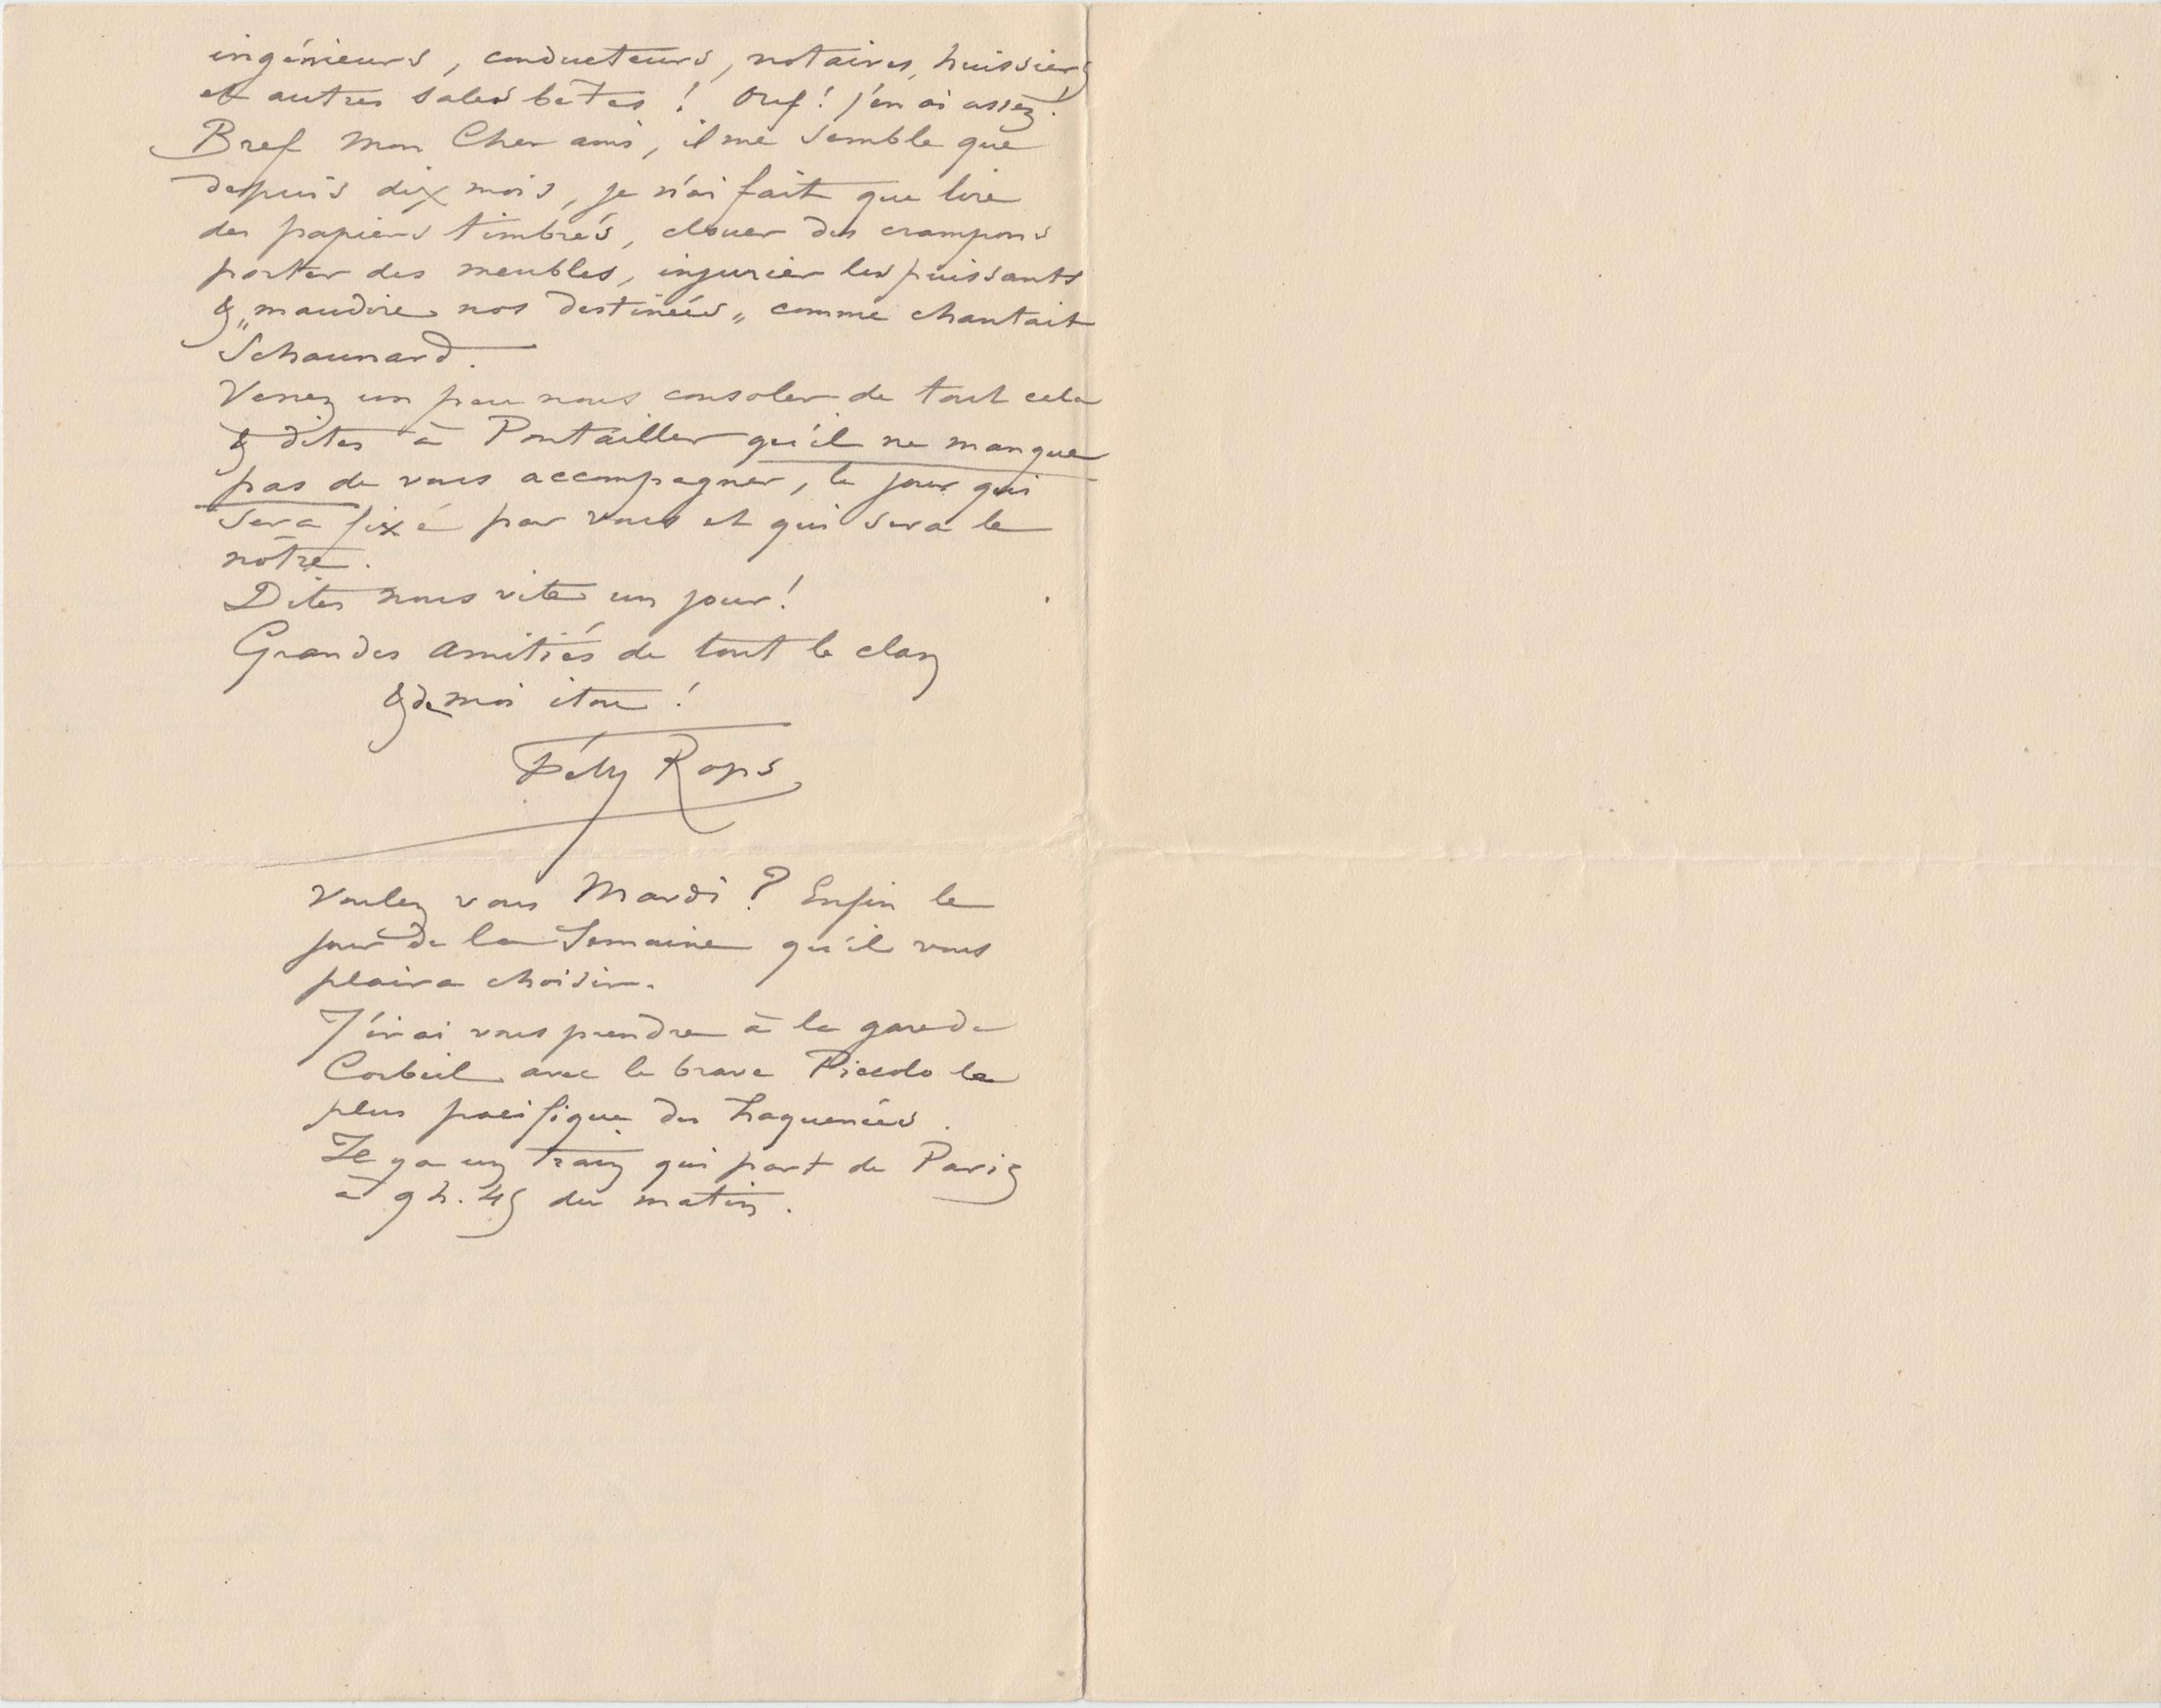 ingénieurs, conducteurs, notaires, huissiers
et autres sales bêtes ! Ouf ! j'en ai assez !
Bref mon Cher ami, il me semble que
depuis dix mois, je n'ai fait que lire
des papiers timbrés, clouer des crampons
porter des meubles, injurier les puissants
& „maudire nos destinées„ comme chantait
Schaunard.
Venez un peu nous consoler de tout cela
& dites à Pontailler qu'il ne manque
pas de vous accompagner, le jour qui
sera fixé par vous et qui sera le
nôtre.
Dites nous vite un jour !
Grandes amitiés de tout le clan
& de moi itou !
Fély Rops
Voulez vous Mardi ? Enfin le
jour de la Semaine qu'il vous
plaira choisir.
J'irai vous prendre à la gare de
Corbeil avec le brave Piccolo le
plus pacifique des haquenées.
Il y a un train qui part de Paris
à 9 h. 45 du matin.